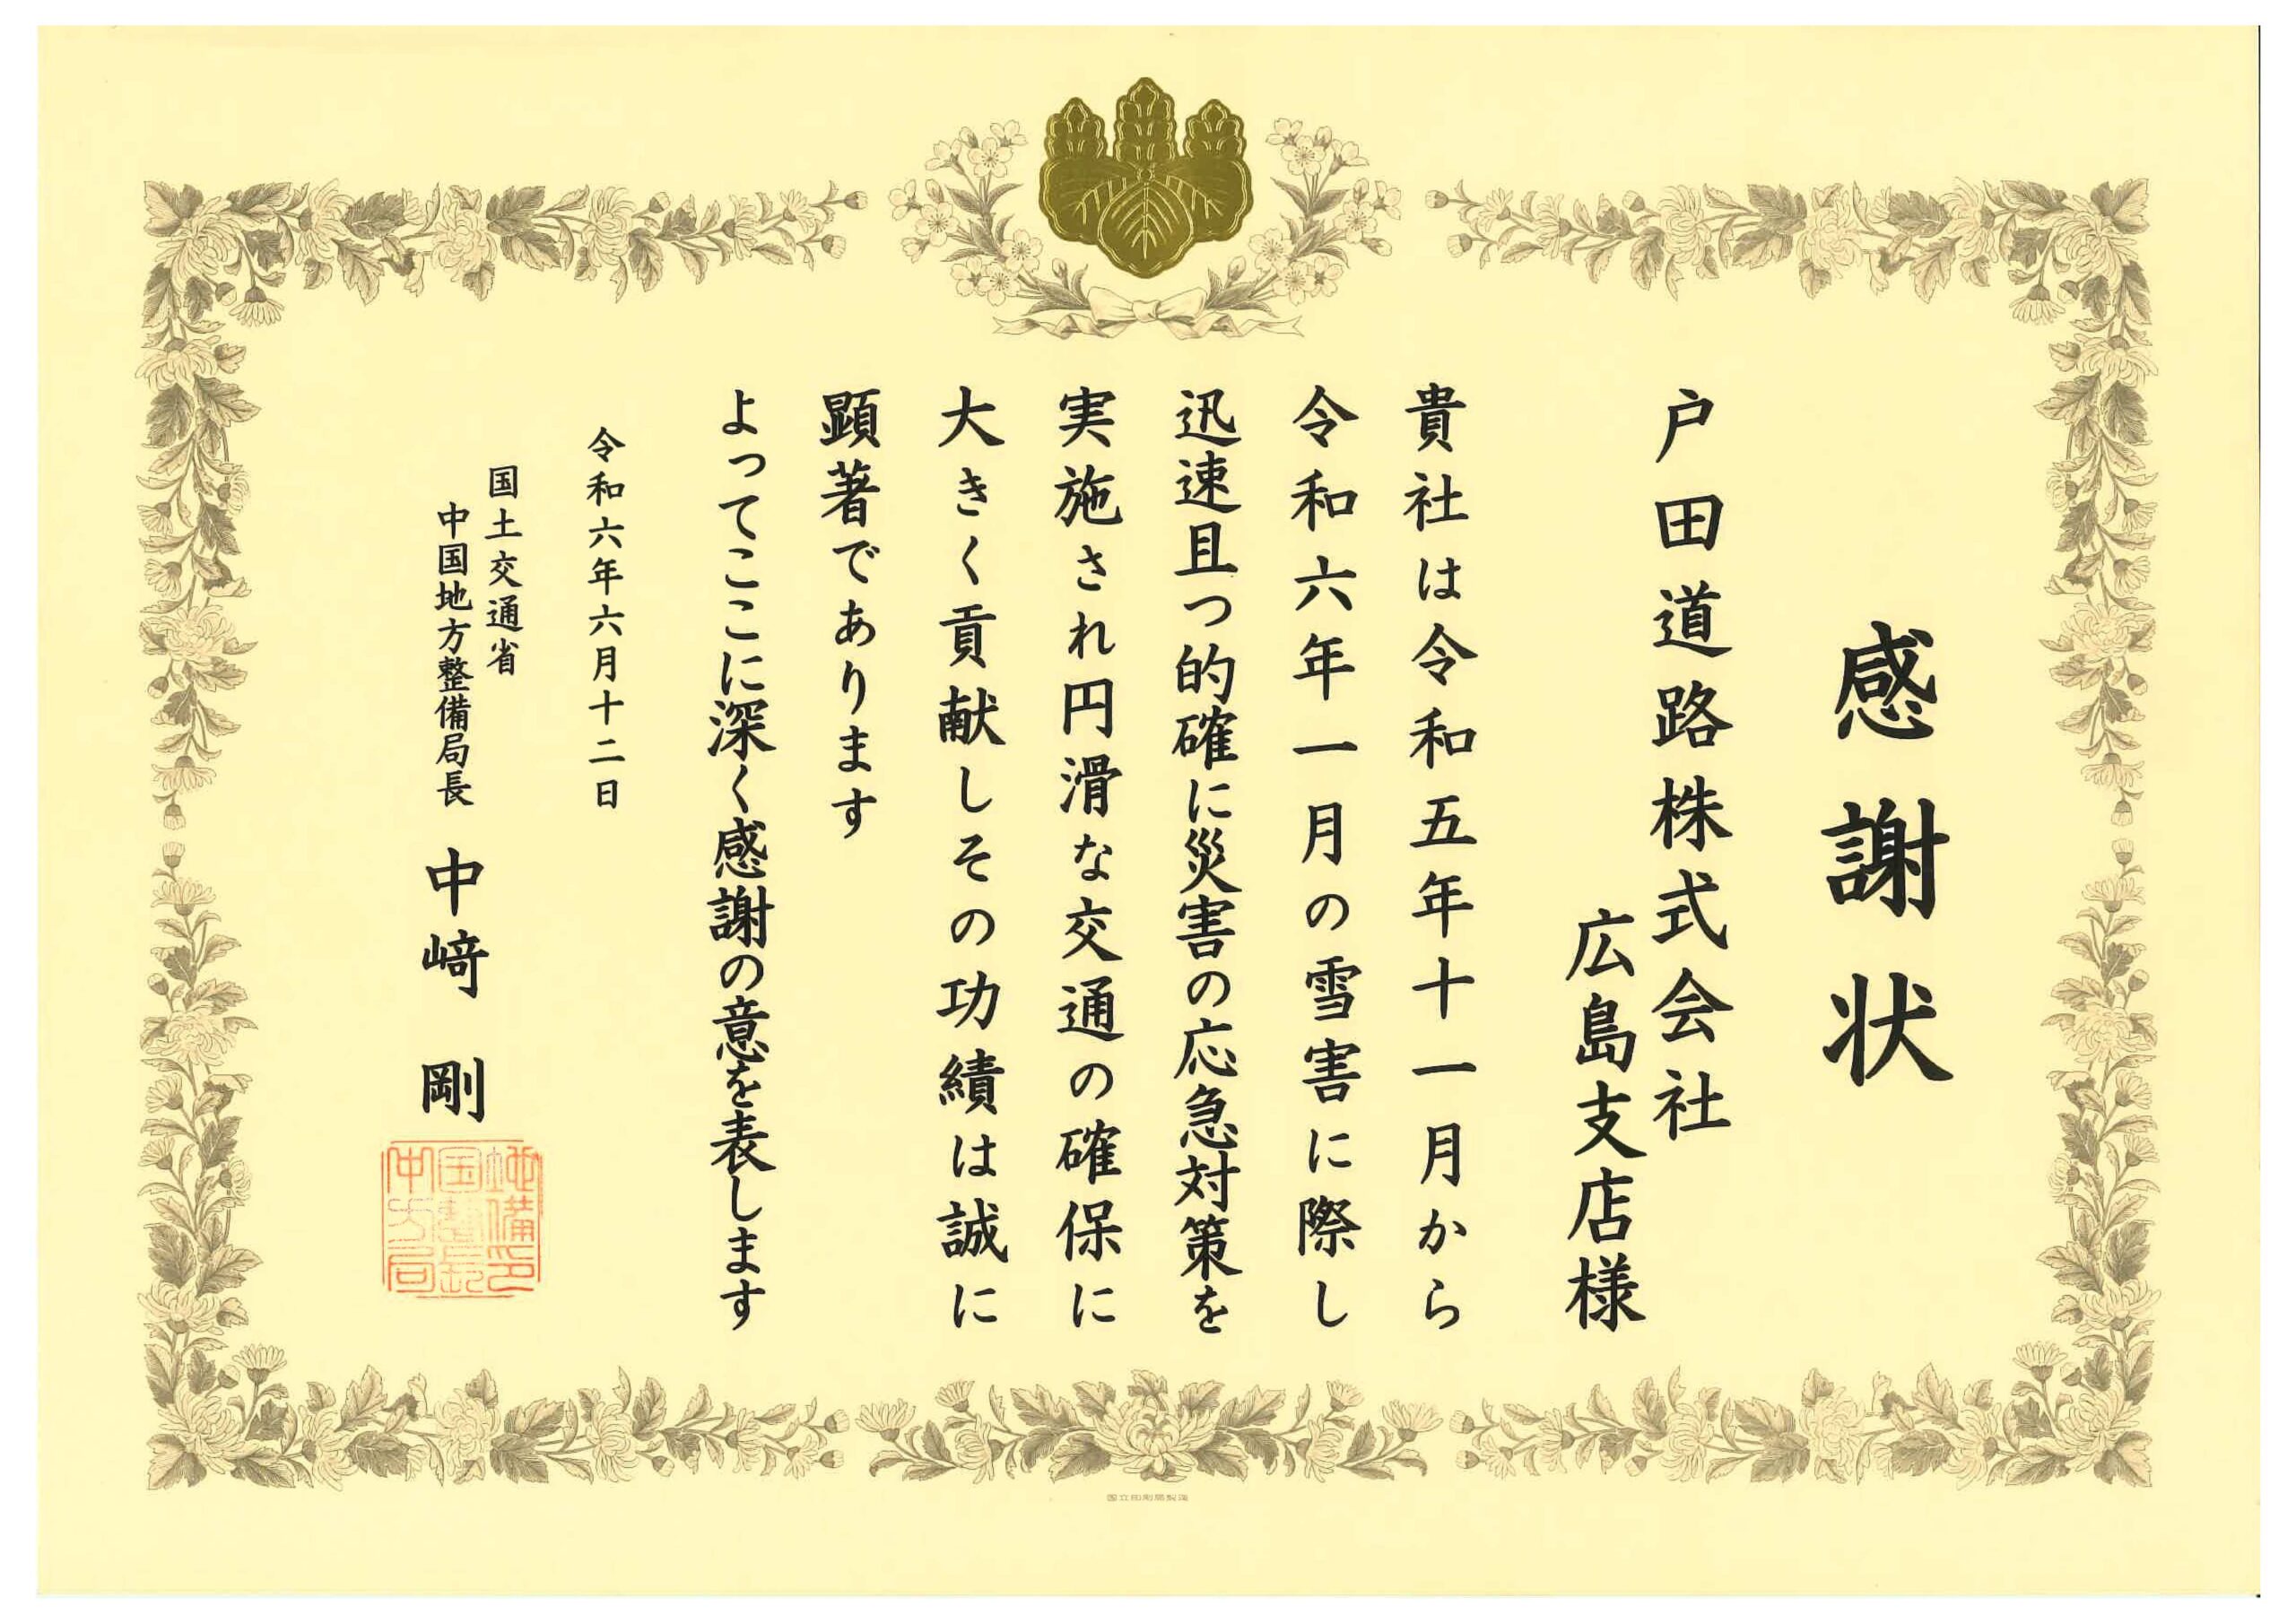 感謝状
戸田道路株式会社
広島支店様
貴社は令和五年十一月から
令和六年一月の雪害に際し
迅速且つ的確に災害の応急対策を
実施され円滑な交通の確保に
大きく貢献しその功績は誠に
顕著であります
よってここに深く感謝の意を表します
令和六年六月十二日
国土交通省
中国地方整備局長 中﨑 剛
国立印刷局製造